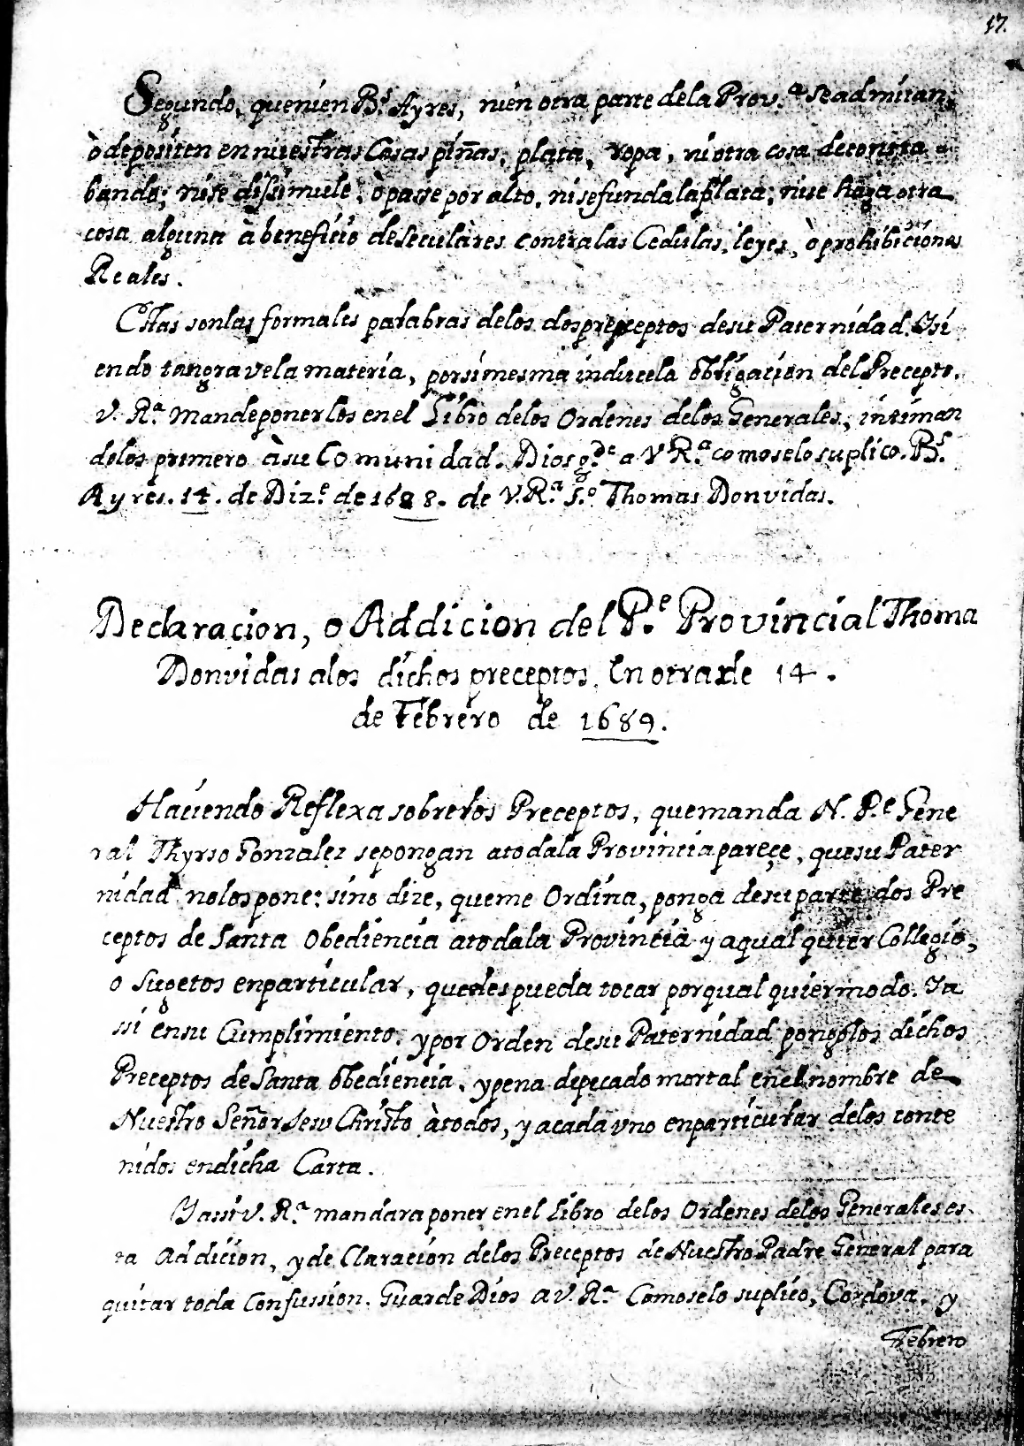 17.
Segundo, que ni en B.s Ayres, ni en otra parte de la Prov.a se admitan,
ò depositen en nuestras Casas piñas, plata, ropa, ni otra cosa de contra
bando; ni se dissimule, ò passe por alto, ni se funda la plata; ni se haga otra
cosa alguna à beneficio de seculares contra las Cedulas, leyes, ò prohibiciones
Reales.
Estas son las formales palabras de los dos preceptos de su Paternidad. Y si
endo tan grave la materia, por si mesma induce la obligacion del Precepto.
V. R.a mande ponerlos en el Libro de los Ordenes de los Generales, intiman
dolos primero à su Comunidad. Dios g.de a V R.a como se lo suplico. B.s
Ayres. 14. de Diz.e de 1688. de V. R.a S.o Thomas Donvidas.
Declaracion, o Addicion del P.e Provincial Thoma
Donvidas a los dichos preceptos. En otra de 14.
de Febrero de 1689.
Haviendo Reflexa sobre los Preceptos, que manda N. P.e Gene
ral Thyrso Gonzalez se pongan a toda la Provincia pareçe, que su Pater
nidad no los pone: sino dize, que me Ordina, ponga de su parte dos Pre
ceptos de Santa Obediencia a toda la Provincia y a qual quier Collegio,
o Sugetos en particular, que les pueda tocar por qual quier modo. Ya
ssi en su Cumplimiento, y por Orden de su Paternidad pongo los dichos
Preceptos de Santa obediencia, y pena de pecado mortal en el nombre de
Nuestro Señor Jesu Christo à todos, y a cada uno en particular de los conte
nidos en dicha Carta.
Y assi V. R.a mandara poner en el Libro de los Ordenes de los Generales es
ta Addicion, y de Claracion de los Preceptos de Nuestro Padre General para
quitar toda Confussion. Guarde Dios a V. R.a Como se lo suplico, Cordova. y
Febrero